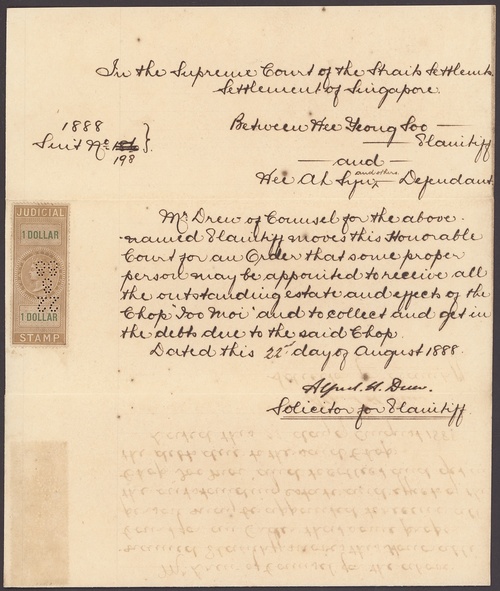 In the Supreme Court of the Straits Settlements
Settlement of Singapore.
1888
Suit No
198
Between Hee Yeong Soo
Plaintiff
and
and others
Hee Ah Syn Defendant
JUDICIAL
1 DOLLAR
1 DOLLAR
STAMP
Mr Drew of Counsel for the above
named Plaintiff moves this Honorable
Court for an Order that some proper
person may be appointed to receive all
the outstanding estate and effects of the
Chop "Joo Moi" and to collect and get in
the debts due to the said Chop.
Dated this 22nd day of August 1888.
Alfred H. Drew.
Solicitor for Plaintiff